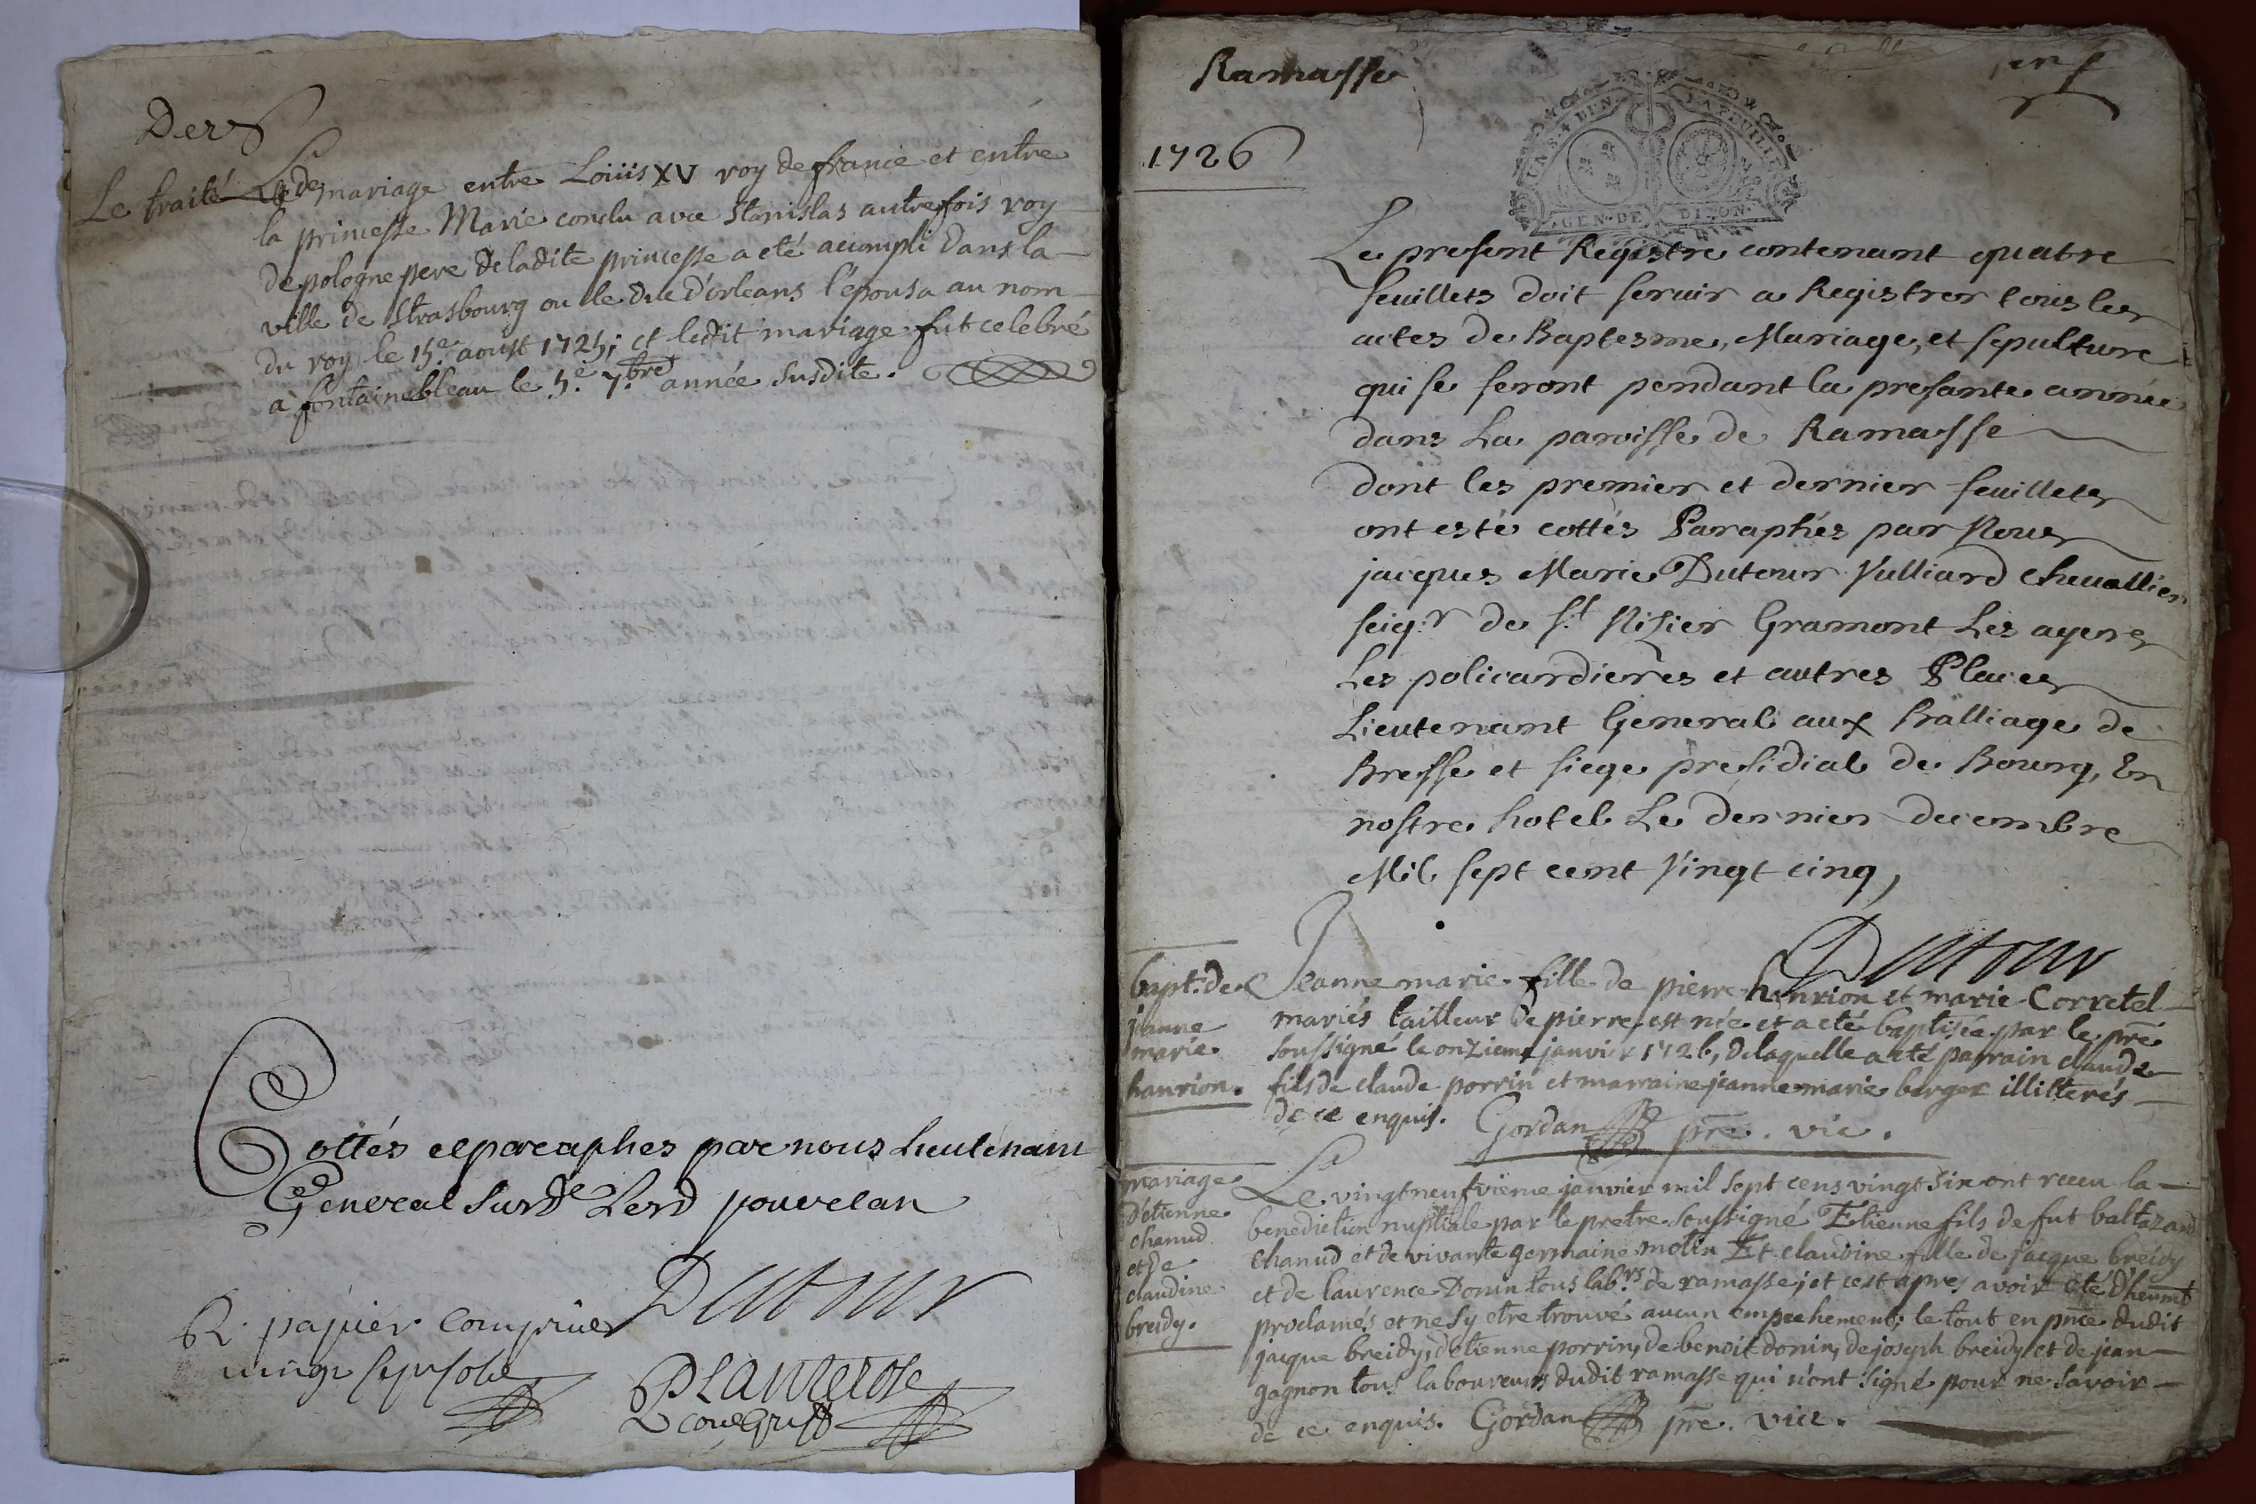 Der
Le traité de mariage entre Loüis XV roy de france et entre
la princesse Marie conclu avce Stanislas autrefois roy
de pologne pere de ladite princesse a eté acompli dans la
ville de Strasbourg ou le duc d'orleans l'épousa au nom
du roy le 15.e aoust 1725; et ledit mariage fut celebré
a fontainebleau le 5.e 7.bre année susdite.
Cottés et paraphes par nous Lieutenant
General
R. papier compris
vingt sept sols
Dutour
Ramasse
1726
UN S. 4 DEN. LA FEUILLE
GEN. DE DIJON
Le present Registre contenant quatre
feuillets doit servir a Registrer tous les
actes de Baptesme, Mariage, et sepulture
qui se feront pendant la presante année
dans La paroisse de Ramasse
dont les premier et dernier feuillets
ont esté cottés Paraphés par Nous
jacques Marie Dutour Vulliard chevallier
seig.r de s.t Nisier Gramont Les
Les policardieres et autres Places
Lieutenant General aux Balliage de
Bresse et siege presidial de Bourg, En
nostre hotel Le dernier decembre
Mil sept cent Vingt cinq,
Dutour
bapt. de
jeanne
marie
hanrion.
Jeanne marie fille de pierre henrion et marie Corretel
mariés tailleur de pierre est née et a eté baptisée par le pre
soussigné le onzieme janvier 1726, de laquelle a eté parrain claude
fils de claude porrin et marraine jeanne marie berger illitterés
de ce enquis. Gordan pre. vic.
mariage
d'etienne
chanud
et de
claudine
breidy.
Le vingt neufvieme janvier mil sept cens vingt six ont receu la
benediction nuptiale par le pretre soussigné Etienne fils de fut baltazard
chanud et de vivante germaine molin Et claudine fille de jacque breidy
et de laurence Donin tous lab.rs de ramasse; et c'est apres avoir eté dheumt
proclamés et ne s'y etre trouvé aucun empechement; le tout en pnce dudit
jacque breidy, d'etienne porrin, de benoit donin, de joseph breidy et de jean
gagnon tous laboureurs dudit ramasse qui n'ont signé pour ne savoir
de ce enquis. Gordan pre. vice.